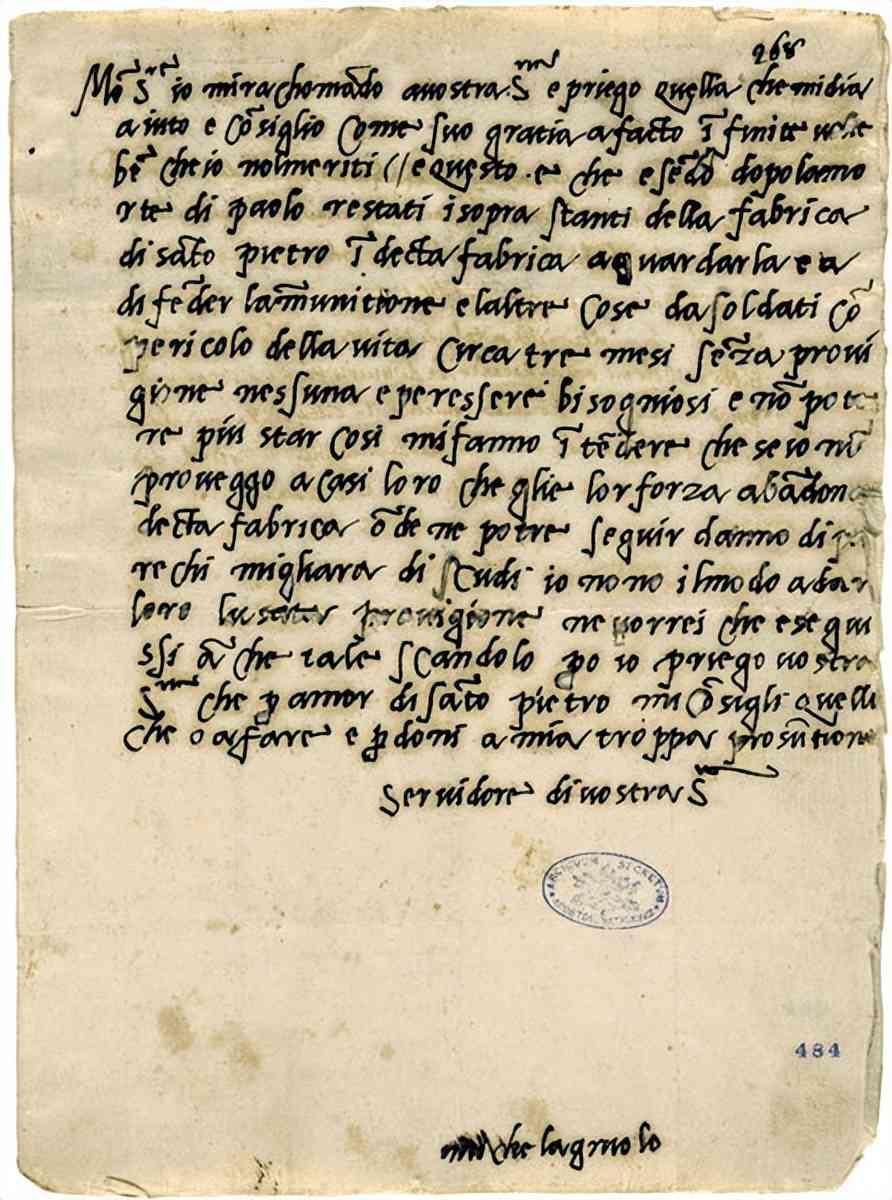 268
Mō Sre io mi rachomādo a vostra S e priego quella che mi dia
aiuto e cōsiglio come suo gratia a facto ī finite volte
bē che io nol meriti // e questo · e che esēdo dopo la mo
rte di paolo restati i sopra stanti della fabrica
di sāto pietro ī decta fabrica a guardarla e a
difēder la munitione e laltre cose da soldati cō
pericolo della vita circa tre mesi sēza provi
gione nessuna e per esserei bisogniosi e nō pote
re piu star cosi mi fanno ī tēdere che se io nō
proveggo a casi loro che glie lor forza abādona
decta fabrica ōde ne potre seguir danno di pa
rechi migliara di scudi io non o il modo a dar
loro lusata provigione ne vorrei che esegui
ssi ā che tale scandolo po io priego vostra
S che p amor di sāto pietro mi cōsigli quelle
che o a fare e pdoni a mia troppa prosūtione
servidore di vostra S
ARCHIVUM SECRETUM
484
michelagniolo